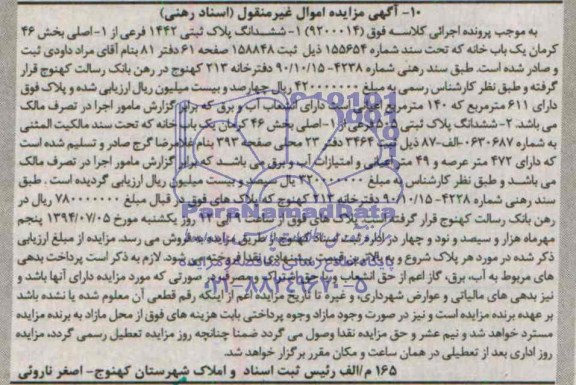 ۱۰- آگهی مزایده اموال غیرمنقول (اسناد رهنی)
به موجب پرونده اجرائی کلاسه فوق (۹۲۰۰۰۱۴) ۱-ششدانگ پلاک ثبتی ۱۴۴۲ فرعی از ۱-اصلی بخش ۴۶
کرمان یک باب خانه که تحت سند شماره ۱۵۵۶۵۴ ذیل ثبت ۱۵۸۸۴۸ صفحه ۶۱ دفتر ۸۱ بنام آقای مراد داودی ثبت
و صادر شده است. طبق سند رهنی شماره ۴۲۳۸-۹۰/۱۰/۱۵ دفترخانه ۲۱۳ کهنوج در رهن بانک رسالت کهنوج قرار
گرفته و طبق نظر کارشناس رسمی به مبلغ ۴۲۰۰۰۰۰۰۰ ریال چهارصد و بیست میلیون ریال ارزیابی شده و پلاک فوق
دارای ۶۱۱ مترمربع که ۱۴۰ مترمربع اعیانی دارای انشعاب آب و برق که برابر گزارش مامور اجرا در تصرف مالک
می باشد. ۲-ششدانگ پلاک ثبتی فرعی از ۱-اصلی بخش ۴۶ کرمان یک باب خانه که تحت سند مالکیت المثنی
به شماره ۰۶۳۰۶۸۷-الف-۸۷ ذیل ثبت ۳۴۶۴ دفتر ۲۳ محلی صفحه ۳۹۳ بنام غلامرضا گرج صادر و تسلیم شده است
که دارای ۴۷۲ متر عرصه و ۴۹ متر اعیانی و امتیازات آب و برق می باشد که برابر گزارش مامور اجرا در تصرف مالک
می باشد و طبق نظر کارشناس به مبلغ ۳۲۰۰۰۰۰۰۰ ریال سیصد و بیست میلیون ریال ارزیابی گردیده است. طبق
سند رهنی شماره ۴۲۲۸-۹۰/۱۰/۱۵ دفترخانه ۲۱۳ کهنوج که پلاک های فوق در قبال مبلغ ۷۸۰۰۰۰۰۰۰ ریال در
رهن بانک رسالت کهنوج قرار گرفته پلاک های فوق از ساعت ۹ الی ۱۲ روز یکشنبه مورخ ۱۳۹۴/۰۷/۰۵ پنجم
مهرماه هزار و سیصد و نود و چهار در اداره ثبت اسناد کهنوج از طریق مزایده به فروش می رسد. مزایده از مبلغ ارزیابی
ذکر شده در مورد هر پلاک شروع و به بالاترین قیمت پیشنهادی نقدا فروخته می شود. لازم به ذکر است پرداخت بدهی
های مربوط به آب، برق، گاز اعم از حق انشعاب و یا حق اشتراک و مصرف در صورتی که مورد مزایده دارای آنها باشد و
نیز بدهی های مالیاتی و عوارض شهرداری، و غیره تا تاریخ مزایده اعم از اینکه رقم قطعی آن معلوم شده یا نشده باشد
بر عهده برنده مزایده است و نیز در صورت وجود مازاد وجوه پرداختی بابت هزینه های فوق از محل مازاد به برنده مزایده
مسترد خواهد شد و نیم عشر و حق مزایده نقدا وصول می گردد ضمنا چنانچه روز مزایده تعطیل رسمی گردد، مزایده
روز اداری بعد از تعطیلی در همان ساعت و مکان مقرر برگزار خواهد شد.
۱۶۵ م/الف رئیس ثبت اسناد و املاک شهرستان کهنوج- اصغر ناروئی
ParaNamadData
۰۲۱-۸۸۳۴۹۶۷۰-۵